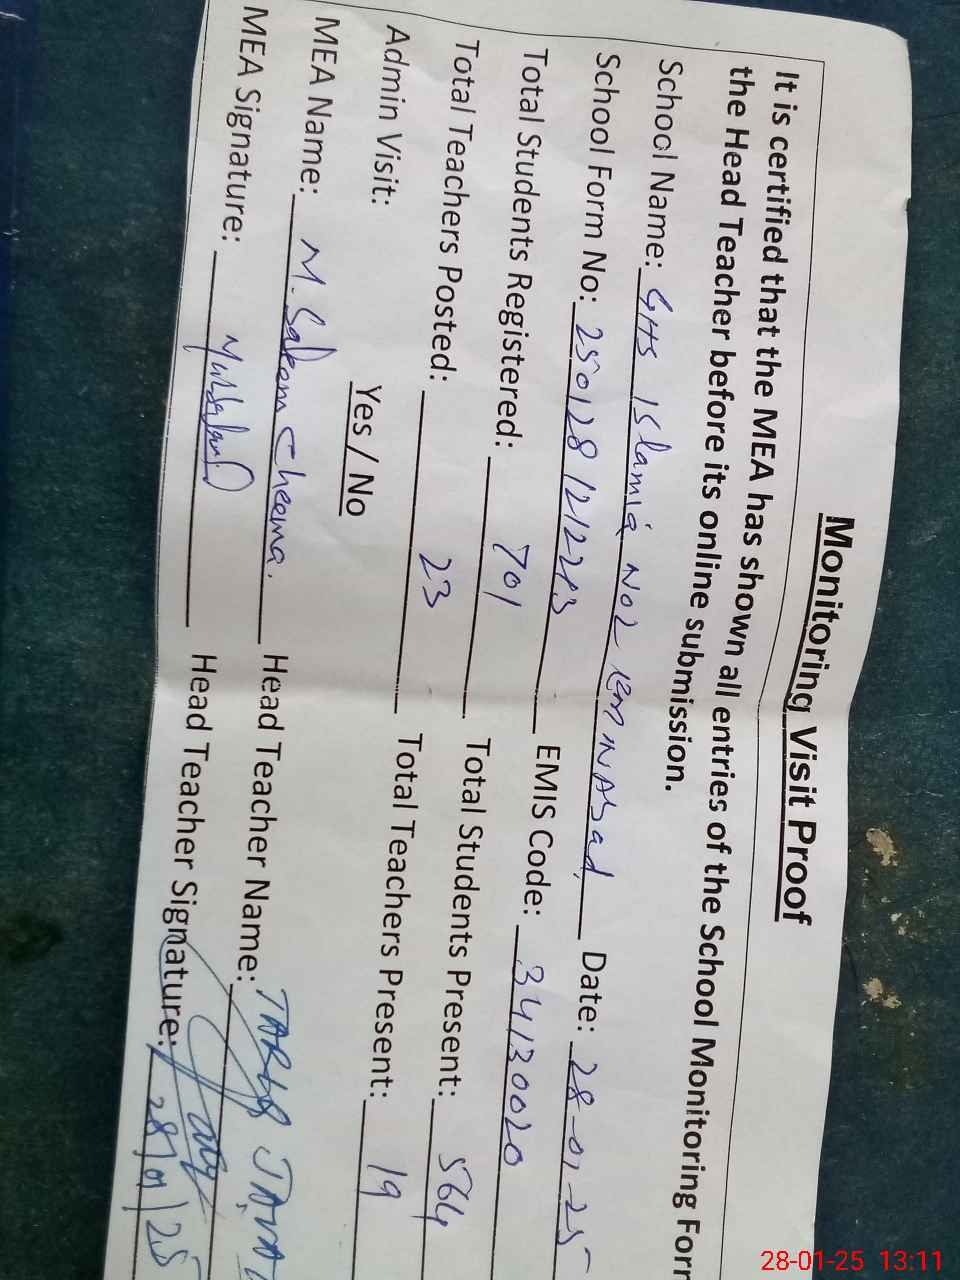 Monitoring Visit Proof
It is certified that the MEA has shown all entries of the School Monitoring Form
the Head Teacher before its online submission.
School Name: GHS Islamia No2 EMINAbad Date: 28-01-25
School Form No: 250128121223 EMIS Code: 34130020
Total Students Registered: 701 Total Students Present: 564
Total Teachers Posted: 23 Total Teachers Present: 19
Admin Visit: Yes / No
MEA Name: M. Saleem Cheema. Head Teacher Name: TARIQ
MEA Signature: Head Teacher Signature: 28/01/25
28-01-25 13:11